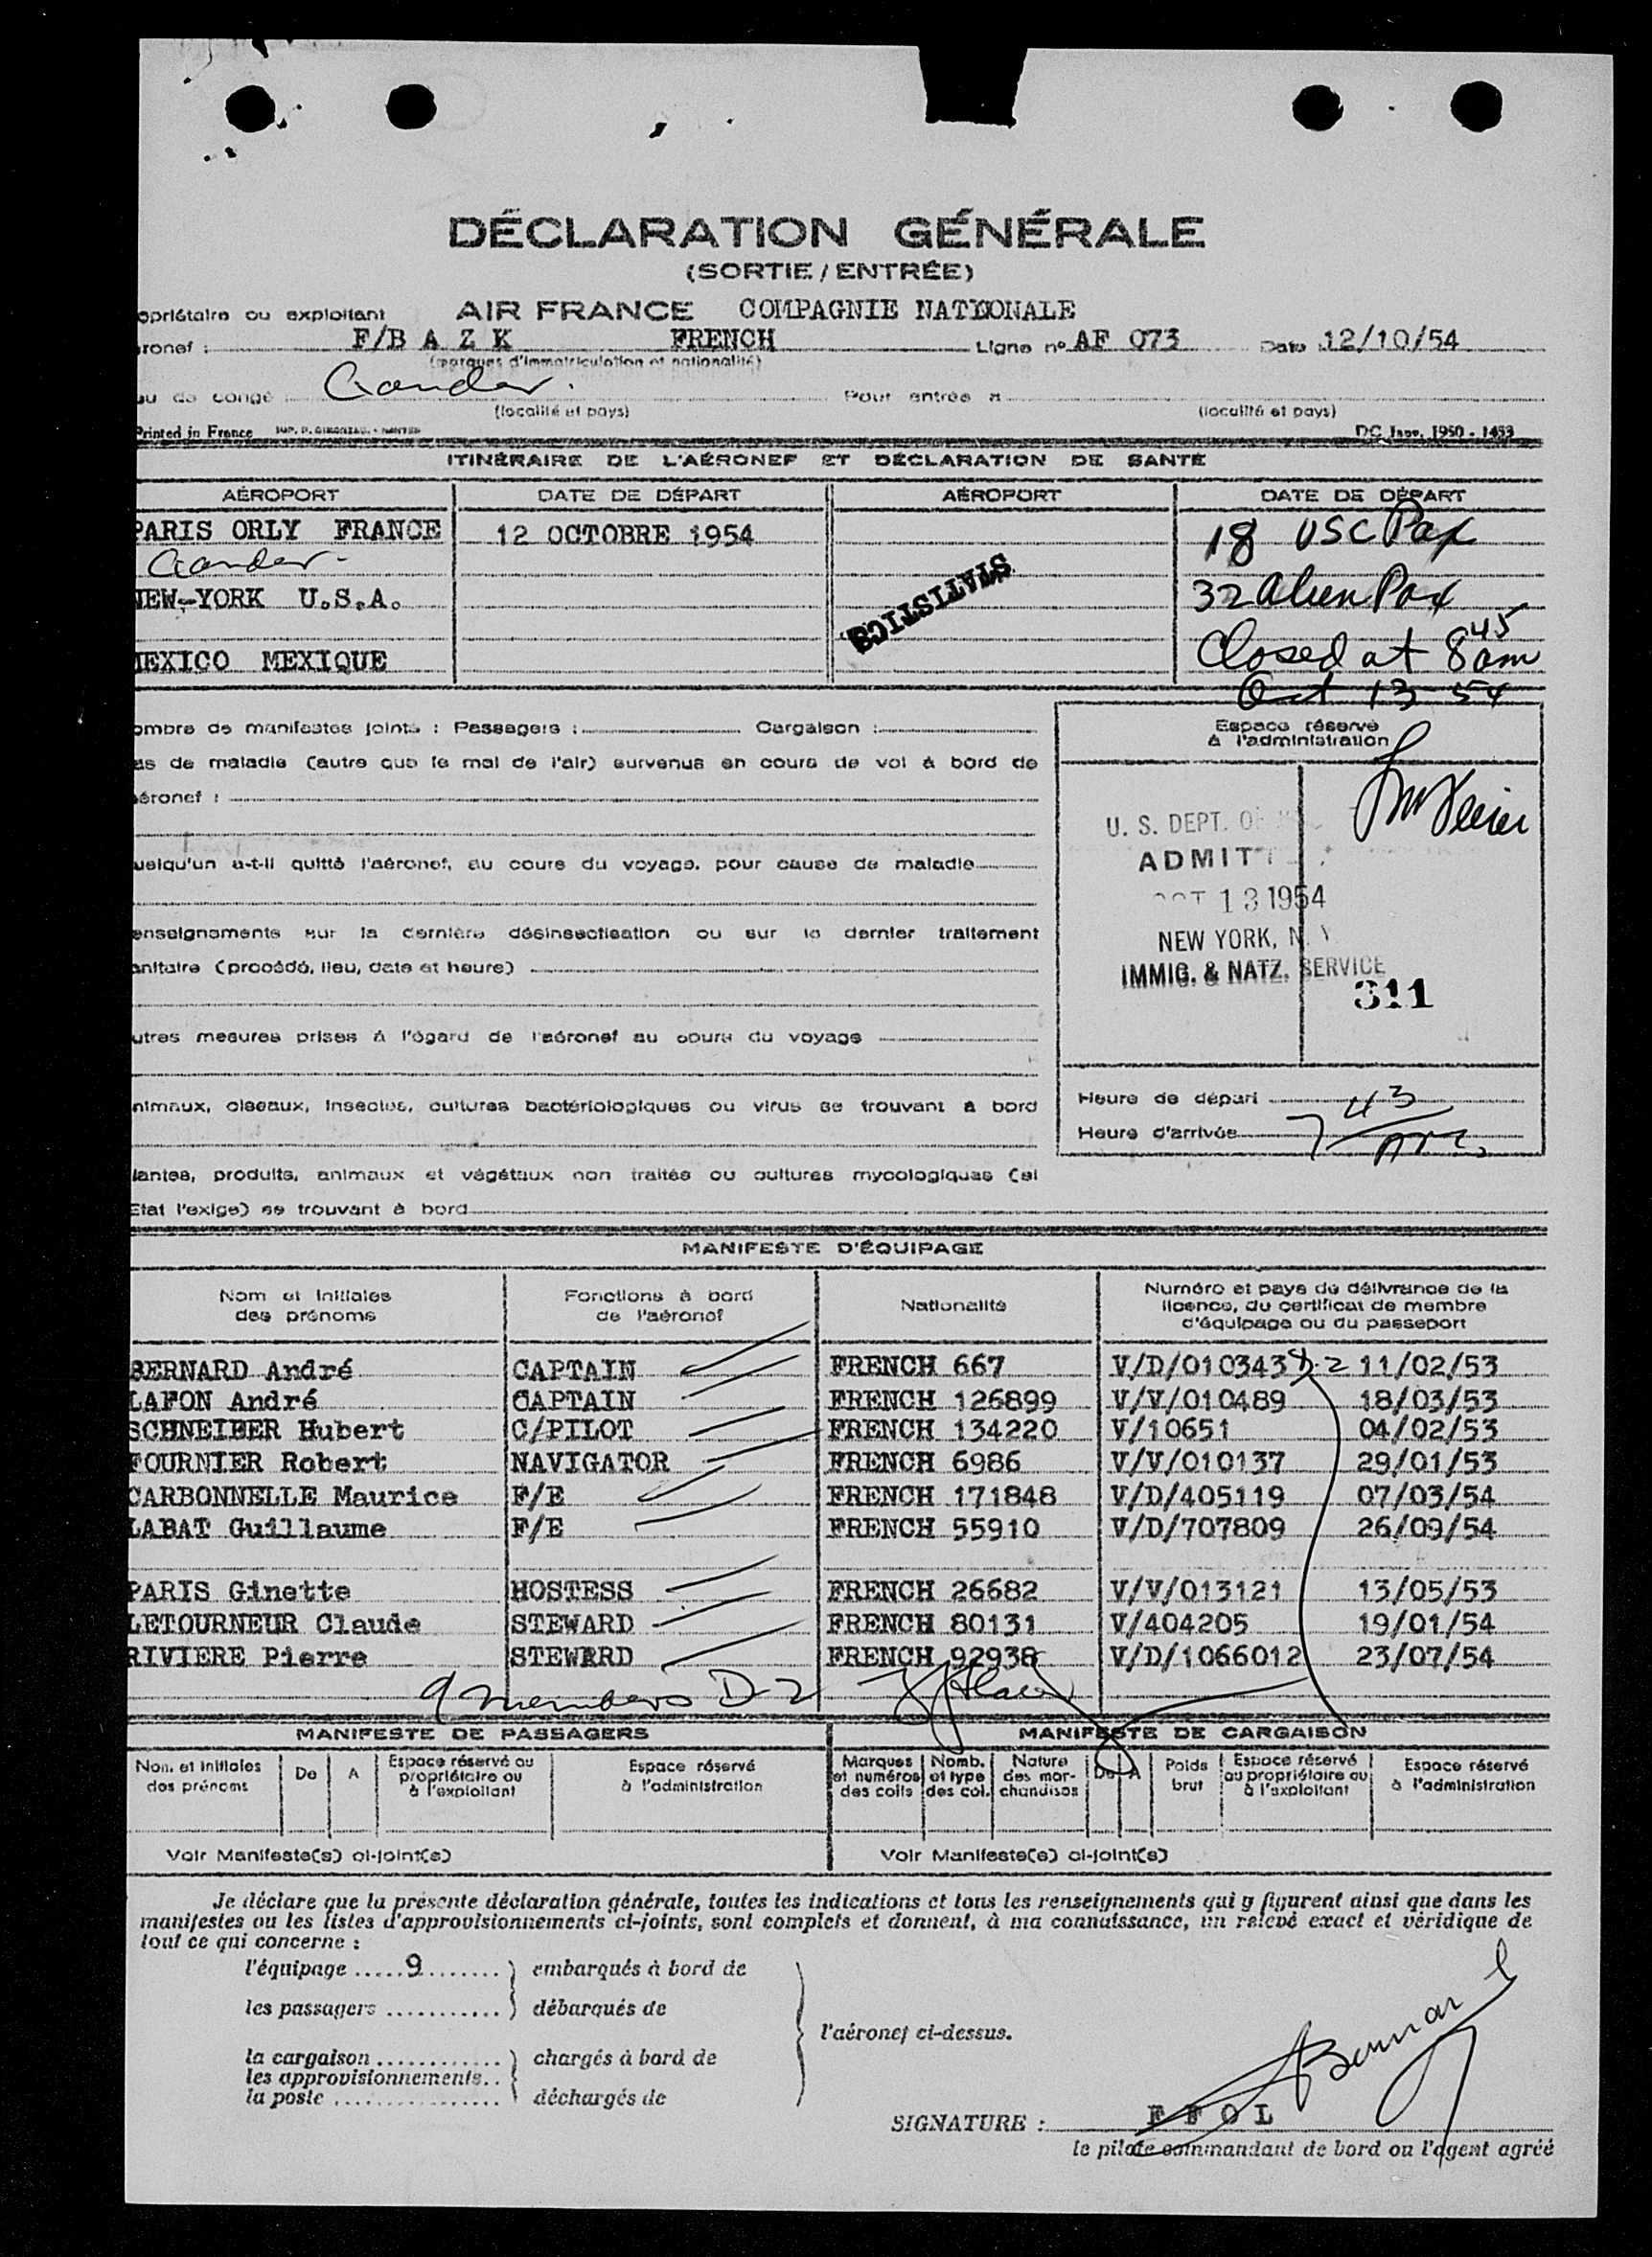 DÉCLARATION GÉNÉRALE
(SORTIE / ENTRÉE)
opriétaire ou exploitant AIR FRANCE COMPAGNIE NATIONALE
ronef : F/B A Z K FRENCH Ligne nº AF 073 Date 12/10/54
(marques d'immatriculation et nationalité)
eu de congé Gander. Pour entrée à
(localité et pays) (localité et pays)
Printed in France DC Janv. 1950 - 1453
ITINÉRAIRE DE L'AÉRONEF ET DÉCLARATION DE SANTÉ
AÉROPORT DATE DE DÉPART AÉROPORT DATE DE DÉPART
PARIS ORLY FRANCE 12 OCTOBRE 1954 18 USC Pax
Gander - STATISTICS
NEW-YORK U.S.A. 32 alien Pax
Closed at 8 45 am
MEXICO MEXIQUE
Oct 13 54
ombre de manifestes joints : Passagers : Cargaison :
Espace réservé à l'administration
as de maladie (autre que le mal de l'air) survenus en cours de vol à bord de
aéronef :
uelqu'un a-t-il quitté l'aéronef, au cours du voyage, pour cause de maladie
enseignements sur la dernière désinsectisation ou sur le dernier traitement
anitaire (procédé, lieu, date et heure)
utres mesures prises à l'égard de l'aéronef au cours du voyage
nimaux, oiseaux, insectes, cultures bactériologiques ou virus se trouvant à bord
lantes, produits, animaux et végétaux non traités ou cultures mycologiques (si
Etat l'exige) se trouvant à bord
U. S. DEPT. OF
ADMIT
OCT 13 1954
NEW YORK, N. Y
IMMIG. & NATZ. SERVICE
311
Heure de départ
Heure d'arrivée 7 43
MANIFESTE D'ÉQUIPAGE
Nom et initiales des prénoms Fonctions à bord de l'aéronef Nationalité Numéro et pays de délivrance de la licence, du certificat de membre d'équipage ou du passeport
BERNARD André CAPTAIN FRENCH 667 V/D/010343 D-2 11/02/53
LAFON André CAPTAIN FRENCH 126899 V/V/010489 18/03/53
SCHNEIBER Hubert C/PILOT FRENCH 134220 V/10651 04/02/53
FOURNIER Robert NAVIGATOR FRENCH 6986 V/V/010137 29/01/53
CARBONNELLE Maurice F/E FRENCH 171848 V/D/405119 07/03/54
LABAT Guillaume F/E FRENCH 55910 V/D/707809 26/09/54
PARIS Ginette HOSTESS FRENCH 26682 V/V/013121 13/05/53
LETOURNEUR Claude STEWARD FRENCH 80131 V/404205 19/01/54
RIVIERE Pierre STEWARD FRENCH 92938 V/D/1066012 23/07/54
9 members D-2
MANIFESTE DE PASSAGERS MANIFESTE DE CARGAISON
Nom et initiales des prénoms De A Espace réservé au propriétaire ou à l'exploitant Espace réservé à l'administration Marques et numéros des colis Nomb. et type des col. Nature des marchandises De A Poids brut Espace réservé au propriétaire ou à l'exploitant Espace réservé à l'administration
Voir Manifeste(s) ci-joint(s) Voir Manifeste(s) ci-joint(s)
Je déclare que la présente déclaration générale, toutes les indications et tous les renseignements qui y figurent ainsi que dans les
manifestes ou les listes d'approvisionnements ci-joints, sont complets et donnent, à ma connaissance, un relevé exact et véridique de
tout ce qui concerne :
l'équipage .....9........ embarqués à bord de
les passagers ............ débarqués de
l'aéronef ci-dessus.
la cargaison ............. chargés à bord de
les approvisionnements..
la poste ................. déchargés de
SIGNATURE : F F O L
ABernard
le pilote commandant de bord ou l'agent agréé